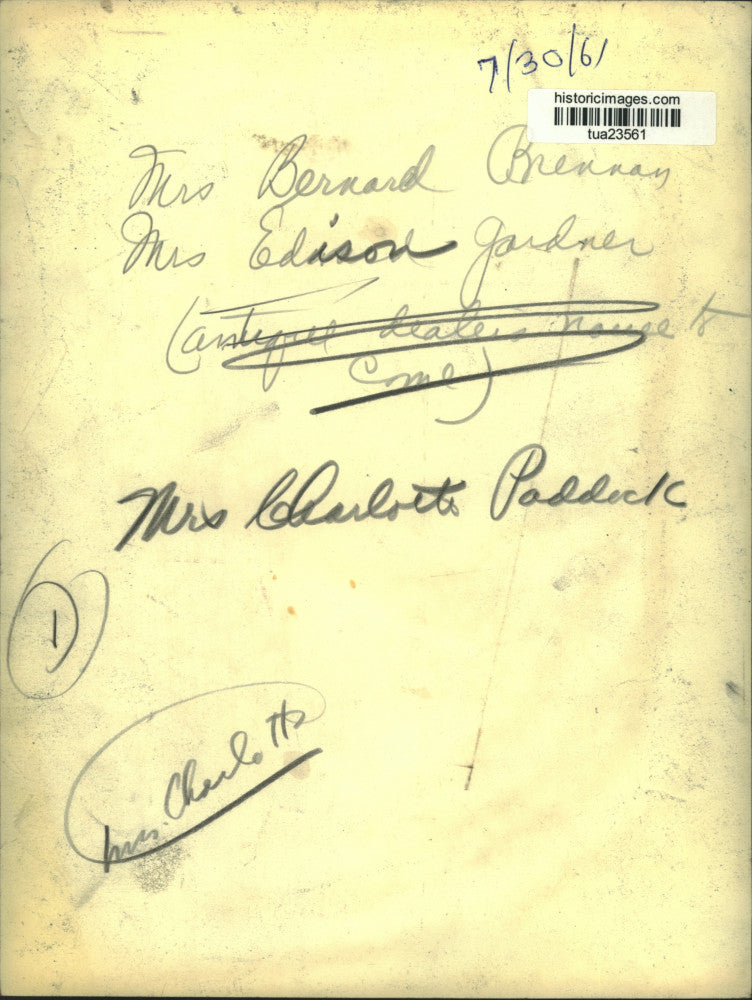 7/30/61
historicimages.com
tua23561
Mrs Bernard Brennan
Mrs Edison Gardner
(antique dealers name to
come)
Mrs Charlotte Paddock
1
Mrs. Charlotte